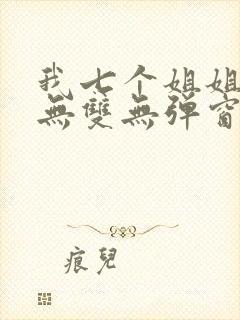 我七个姐姐
無雙無彈窗
痕兒